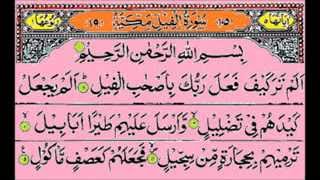 سُوْرَةُ الْفِيْلِ مَكِّيَّةٌ
بِسْمِ اللّٰهِ الرَّحْمٰنِ الرَّحِيْمِ
اَلَمْ تَرَ كَيْفَ فَعَلَ رَبُّكَ بِاَصْحٰبِ الْفِيْلِ اَلَمْ يَجْعَلْ
كَيْدَهُمْ فِيْ تَضْلِيْلٍ وَّاَرْسَلَ عَلَيْهِمْ طَيْرًا اَبَابِيْلَ
تَرْمِيْهِمْ بِحِجَارَةٍ مِّنْ سِجِّيْلٍ فَجَعَلَهُمْ كَعَصْفٍ مَّاْكُوْلٍ